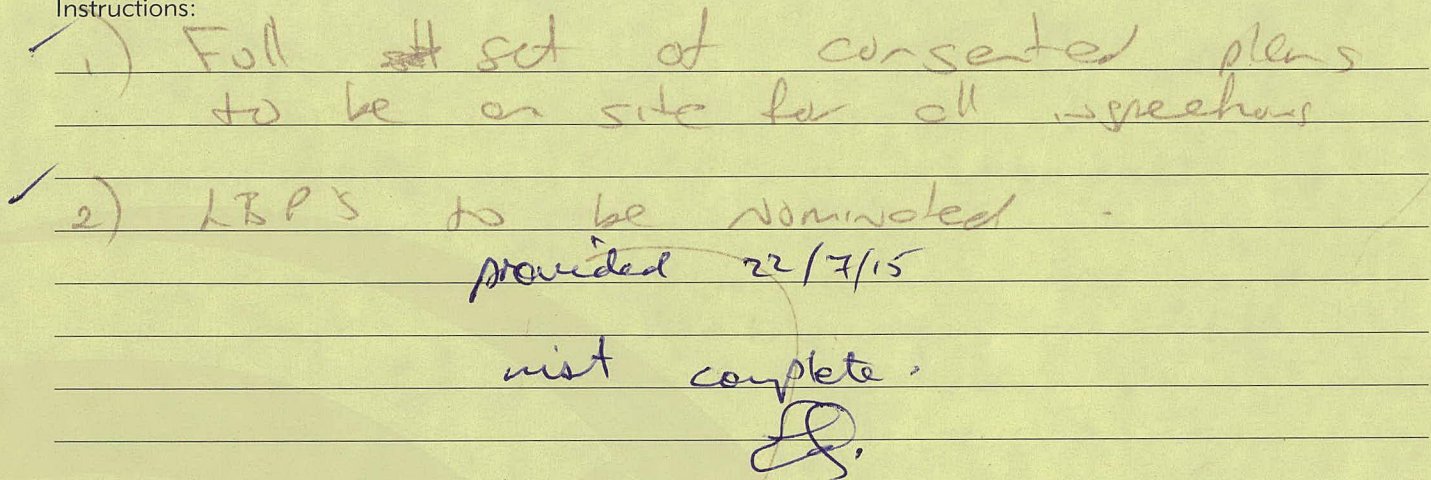 Instructions:
1) Full set of consented plans
to be on site for all inspections
2) LBP's to be Nominated .
provided 22/7/15
complete .